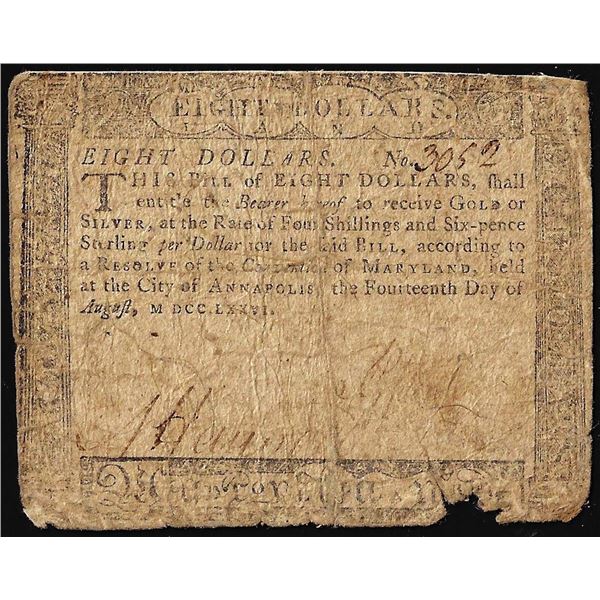 EIGHT DOLLARS.
EIGHT DOLLARS. No. 3052
THIS BILL of EIGHT DOLLARS, ſhall
entitle the Bearer hereof to receive GOLD or
SILVER, at the Rate of Four Shillings and Six-pence
Sterling per Dollar for the ſaid BILL, according to
a RESOLVE of the Convention of MARYLAND, held
at the City of ANNAPOLIS, the Fourteenth Day of
Auguſt, MDCC.LXXVI.